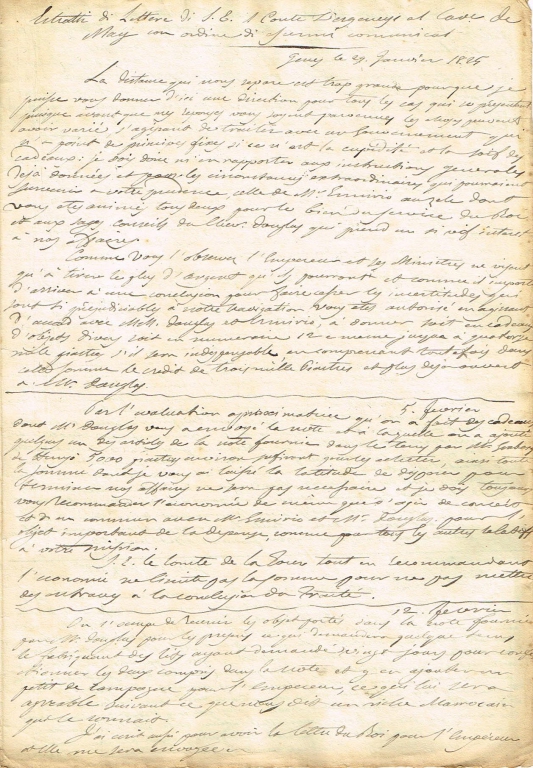 Estratti di Lettere di S.E. il Conte D'Argeneys al Cav. de
May con ordine di
Genes le 29. Janvier 1825
La distance qui nous separe est trop grande pour que je
puisse vous donner d'ici une direction pour tous les cas qui se presentent
puisque avant que mes reponses vous soyent parvenues les choses peuvent
avoir varié s'agissant de traiter avec un Gouvernement qui
n'a point de principes fixes si ce n'est la cupidité et la soif des
cadeaux: je dois donc m'en rapporter aux instructions generales
deja données et pour les circonstances extraordinaires qui pourraient
survenir à votre prudence celle de Mr. Ermirio au zele dont
vous etes animés tous deux pour le bien du service du Roi
et aux sages conseils du Sieur Douglas qui prend un si vif interet
à nos affaires.
Comme vous l'observez l'Empereur et ses Ministres ne visent
qu'à tirer le plus d'argent qu'ils pourront et comme il importe
d'arriver à une conclusion pour faire cesser les incertitudes qui
sont si préjudiciables à notre navigation vous etes autorisé en agissant
d'accord avec MM. Douglas et Ermirio, à donner soit en cadeaux
d'objets divers soit en numeraire 12 et meme jusqu'a quatorze
mille piastres s'il sera indispensable en comprenant toutefois dans
cette somme le credit de trois mille Piastres et plus deja ouvert
à Mr. Douglas
5. fevrier
Par l'evaluation approximative qu'on a fait des cadeaux
dont Mr. Douglas vous a envoyé la note et à laquelle on a ajouté
quelques uns des articles de la note fournie dans le tems par Mr.
5000 piastres environ suffiront pour les acheter ainsi toute
la somme dont je vous ai laissé la latitude de disposer pour
terminer nos affaires ne sera pas necessaire et je dois toujours
vous recommander l'economie de meme que d'agir de concert
et d'un commun accord Mr. Ermirio et Mr. Douglas pour l'
objet important de la depense, comme pour tous les autres relatifs
à votre mission.
S.E. le Comte de la Tour tout en recommandant
l'economie ne limite pas la somme pour ne pas mettre
des entraves à la conclusion du Traité.
12. fevrier
On s'occupe de reunir les objets portés dans la note fournie
par Mr. Douglas pour les presens ce qui demandera quelque tems
le fabriquant des lits ayant demandé vingt jours pour
les deux compris dans la note et y en ajouter un
petit de campagne pour l'Empereur, ce qui lui sera
agreable suivant ce que nous dit un riche Marocain
qui le connait.
J'ai ecrit aussi pour avoir la lettre du Roi pour l'Empereur
et elle me sera envoyée